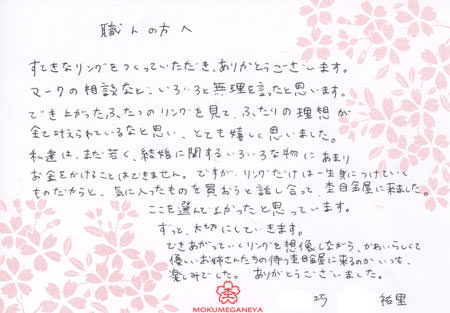 職人の方へ
すてきなリングをつくっていただき、ありがとうございます。
マークの相談など、いろいろと無理を言ったと思います。
でき上がったふたつのリングを見て、ふたりの理想が
全て叶えられているなと思い、とても嬉しく思いました。
私達は、まだ若く、結婚に関するいろいろな物にあまり
お金をかけることはできません。ですが、リングだけは一生身につけていく
ものだからと、気に入ったものを買おうと話し合って、杢目金屋に来ました。
ここを選んでよかったと思っています。
ずっと、大切にしていきます。
できあがっていくリングを想像しながら、かわいらしくて
優しいお姉さんたちの待つ杢目金屋に来るのがいつも、
楽しみでした。ありがとうございました。
巧 祐里
MOKUMEGANEYA